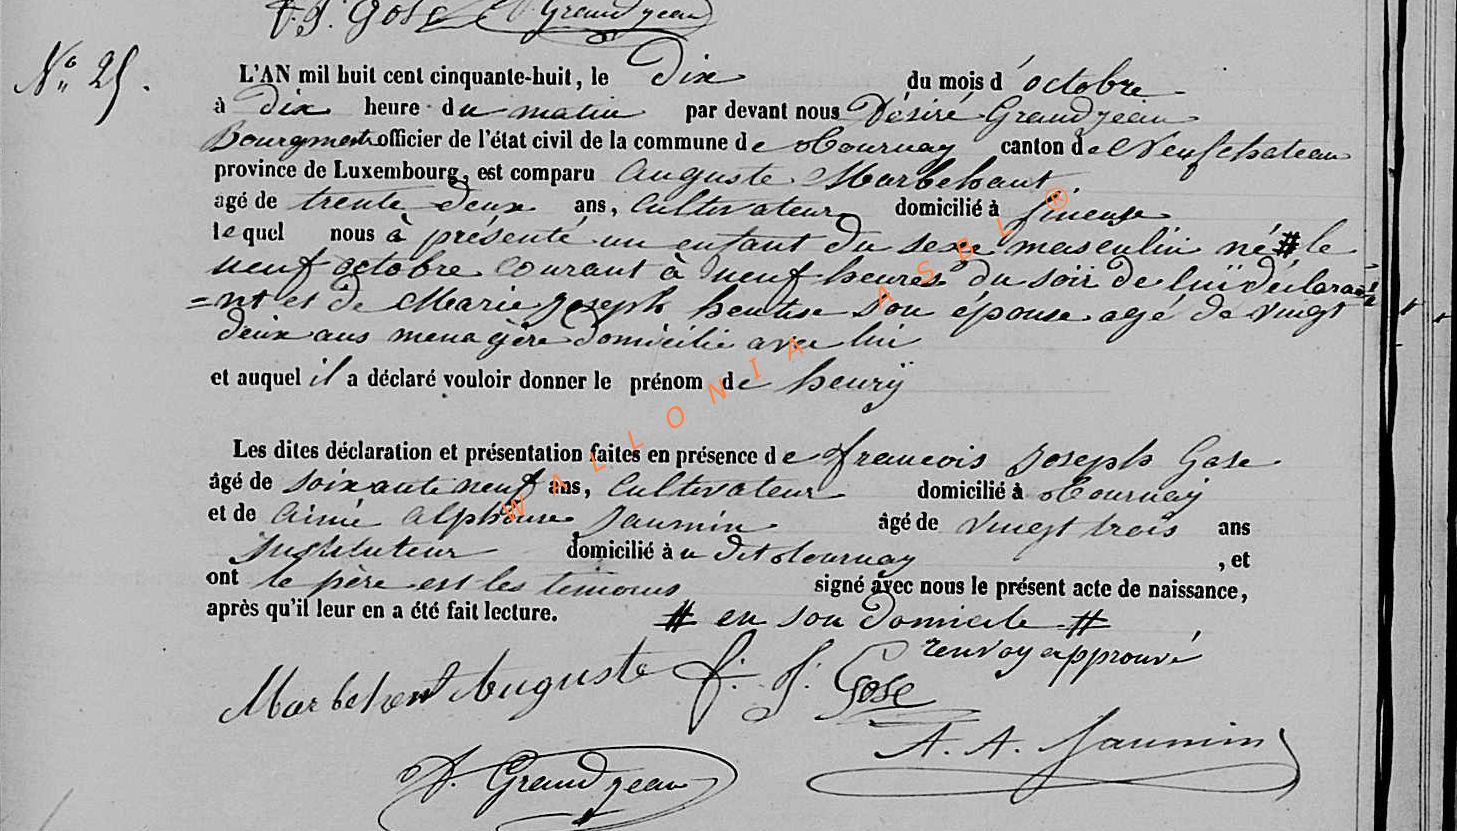 F. J. Gose D. Grandjean
No. 25.
L'AN mil huit cent cinquante-huit, le Dix du mois d'octobre
à Dix heure du matin par devant nous Désiré Grandjean
Bourgmestre officier de l'état civil de la commune de tournay canton de Neufchateau
province de Luxembourg, est comparu Auguste Marbehant
agé de trente deux ans, Cultivateur domicilié à fineuse
lequel nous à présenté un enfant du sexe masculin né # le
neuf octobre courant à neuf heures du soir de lui déclara
=nt et de Marie Joseph heutise son épouse agé de vingt
deux ans menagère domicilié avec lui
et auquel il a déclaré vouloir donner le prénom de henry
Les dites déclaration et présentation faites en présence de francois Joseph Gose
âgé de soixante neuf ans, Cultivateur domicilié à tournay
et de Aimé Alphonse Jaumin âgé de vingt trois ans
Instituteur domicilié à u dit tournay, et
ont le père est les témoins signé avec nous le présent acte de naissance,
après qu'il leur en a été fait lecture. # en son domicile #
renvoy approuvé
Marbehant Auguste F. J. Gose
A. A. Jaumin
D. Grandjean
WALLONIA ASBL ®